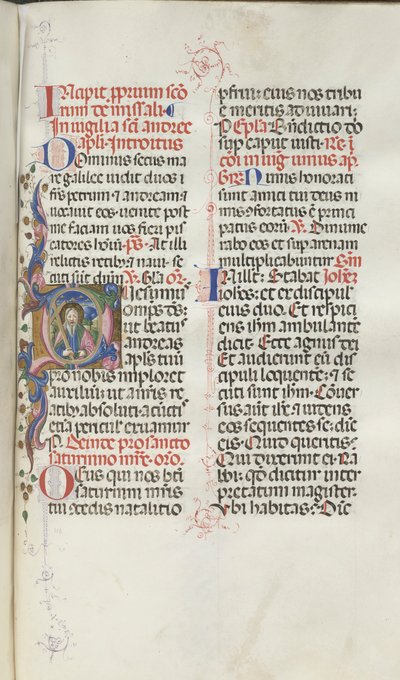 Incipit pprium sco
rum de missali.
In vigilia sci andree
apli. Introitus
Dominus secus ma
re galilee vidit duos
frs petrum ⁊ andream ⁊
vocavit eos venite post
me faciam vos fieri pi
catores hoim. ps. At illi
relictis retibus ⁊ navi se
cuti sut dnm. V. Gla. Or.
Quesumus
omps ds:
ut beatus
andreas
apls tuus
pro nobis imploret
auxiliu: ut a nris re
atibus absoluti: a cunctis
etia periculis eruamur
p. Deinde pro sancto
saturnino mre. oro.
Deus qui nos bti
saturnini mris
tui concedis natalitio
pfrui: eius nos tribu
e meritis adiuvari.
p. Epla. Bndictio do
sup caput iusti. Re. i
coi in vig. unius ap.
Gr. Nimis honorati
sunt amici tui deus ni
mis ⁊fortatus e princi
patus eorum. V. Dinume
rabo eos et sup arenam
multiplicabuntur.
In illo t. Stabat Johes
iohes: et ex discipul
eius duo. Et respici
ens ihm ambulante
dicit. Ecce agnus dei
Et audierunt eu di
scipuli loquente: ⁊ se
cuti sunt ihm. Conver
sus aut ihs: ⁊ videns
eos sequentes se: dic
eis. Quid queritis.
Qui dixerunt ei. Ra
bbi: qd dicitur inter
pretatum magister.
Ubi habitas: Dic